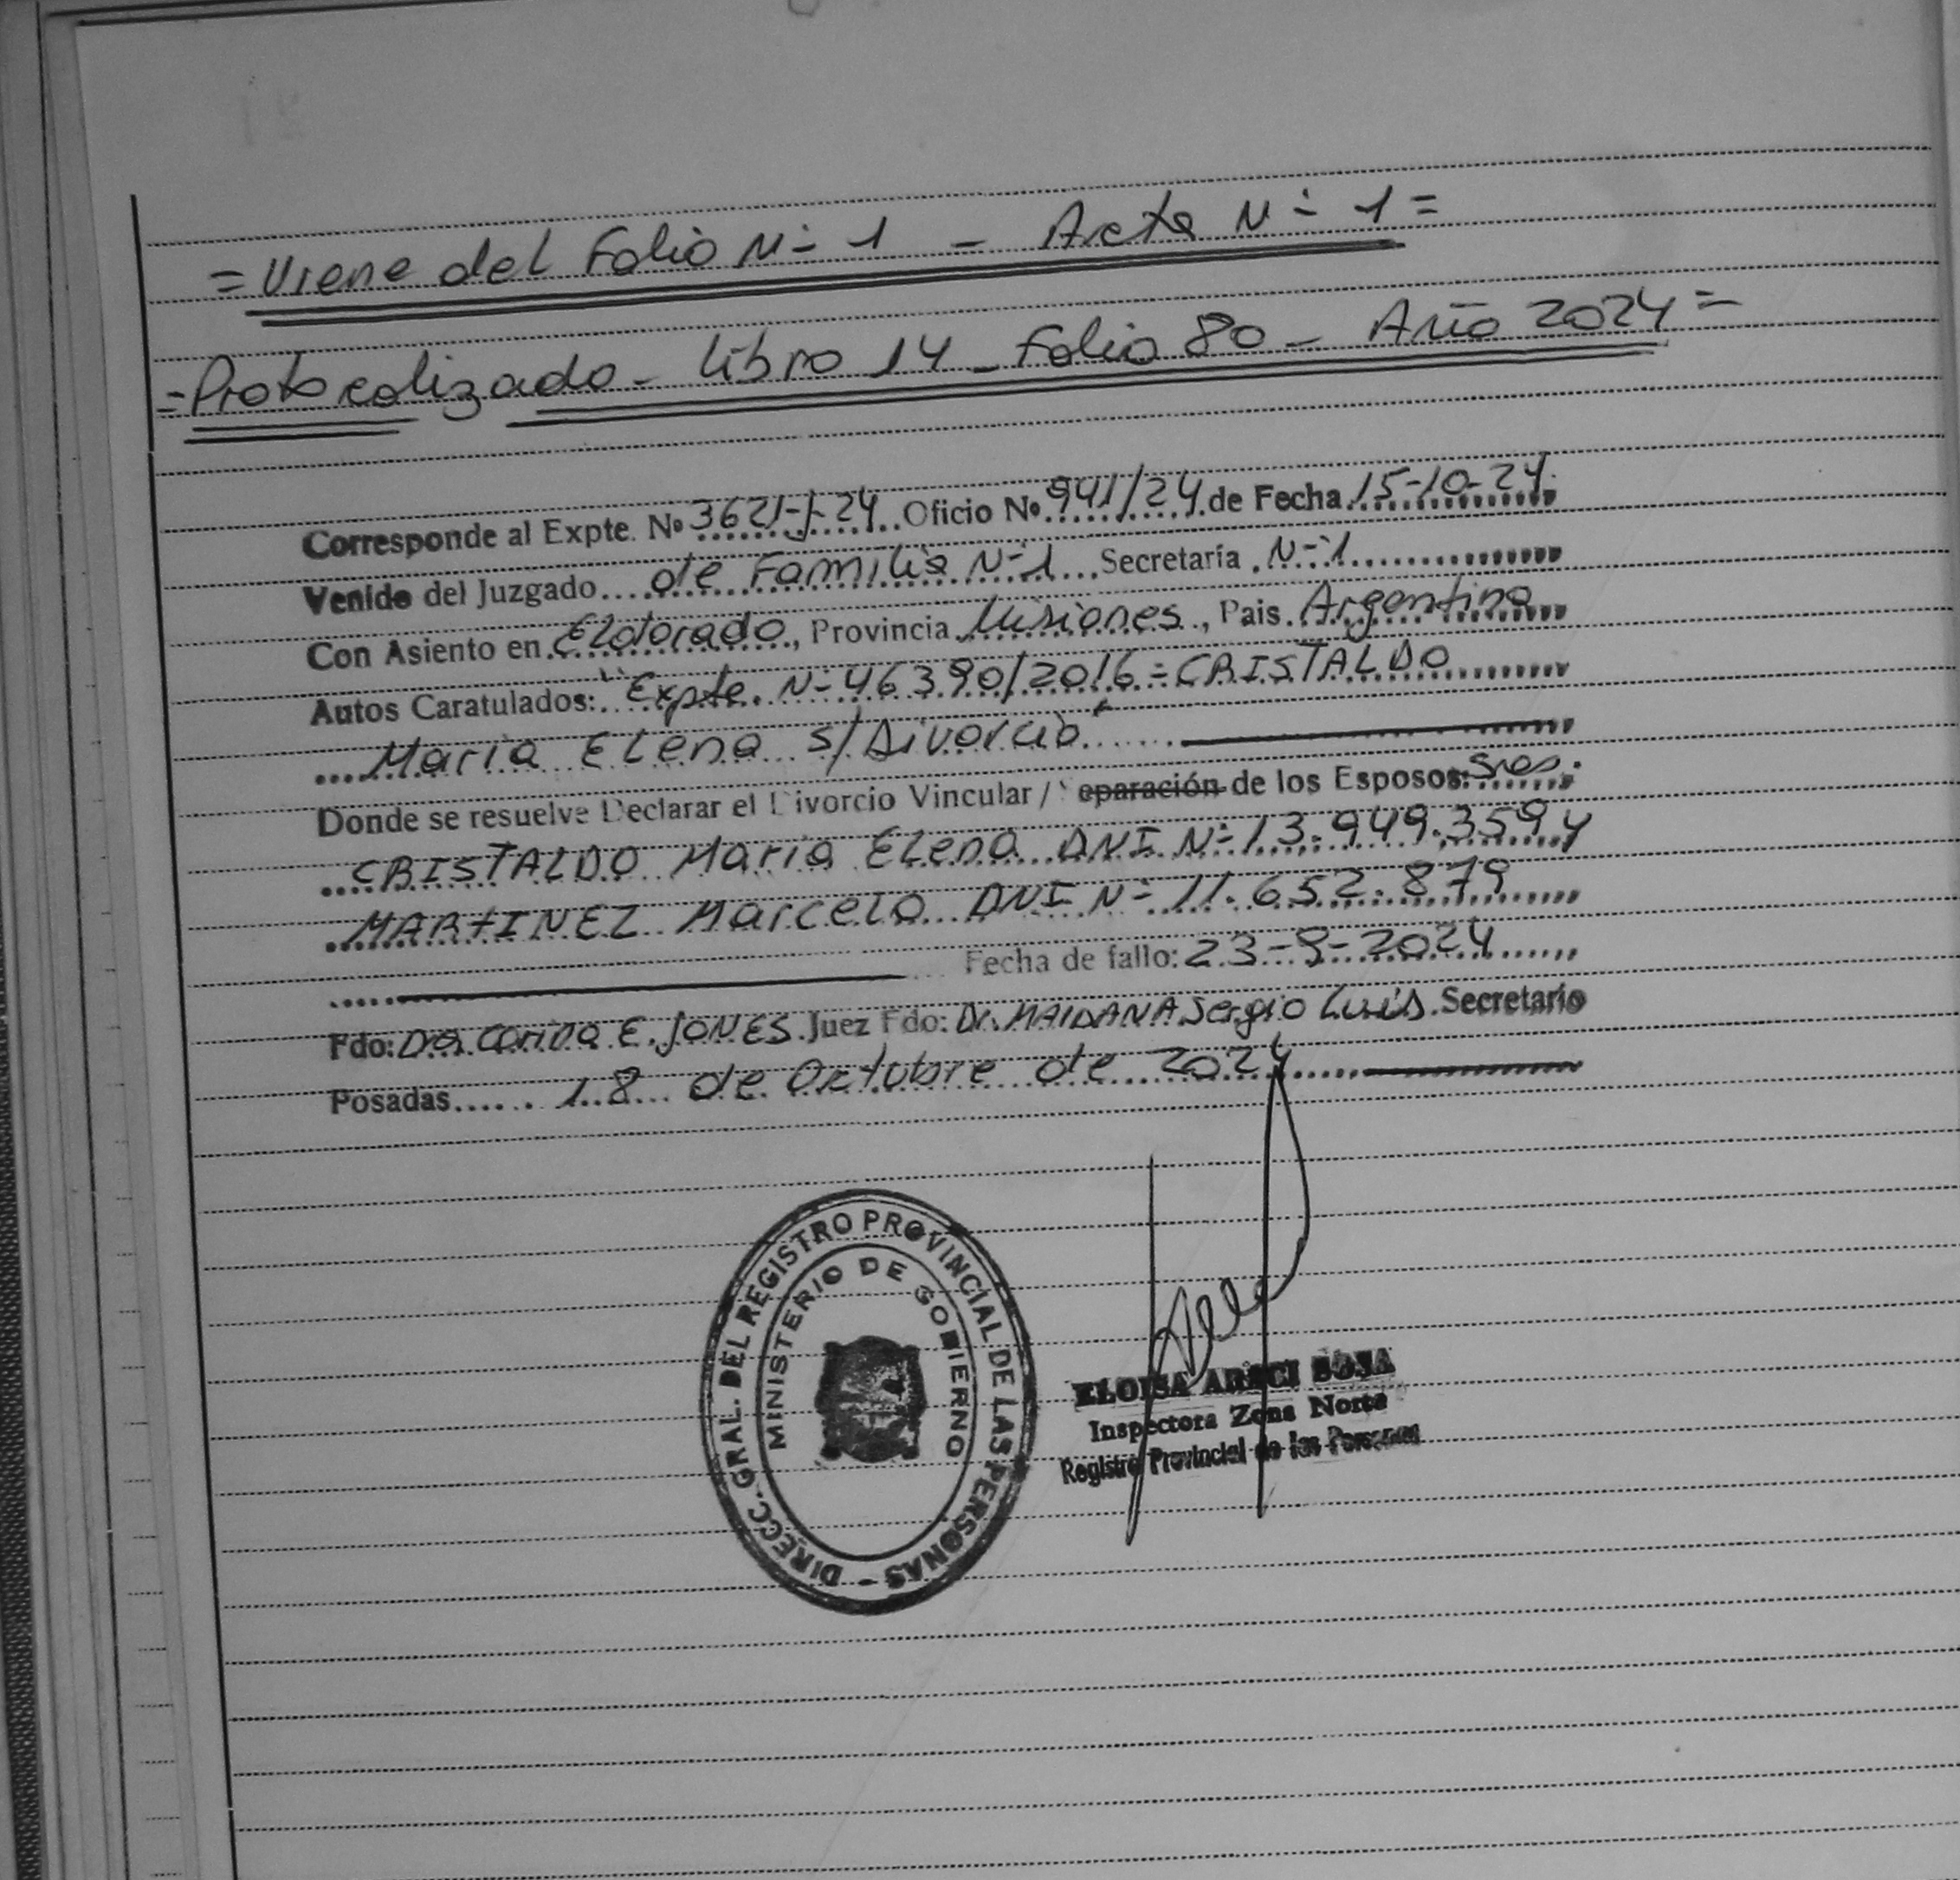 = Viene del Folio N= 1 - Acta N= 1 =
= Protocolizado - Libro 14 - Folio 80 - Año 2024 =
Corresponde al Expte. Nº 3621-J-24 Oficio Nº 941/24 de Fecha 15-10-24.
Venido del Juzgado de Familia N=1 Secretaría N=1
Con Asiento en Eldorado, Provincia Misiones, Pais Argentina
Autos Caratulados: "Expte. N=46390/2016 = CRISTALDO
Maria Elena s/Divorcio"
Donde se resuelve Declarar el Divorcio Vincular / Separación de los Esposos: Sres.
CRISTALDO Maria Elena DNI N= 13.949.359 y
MARTINEZ Marcelo DNI N= 11.652.879
Fecha de fallo: 23-9-2024
Fdo: Dra. Corina E. JONES Juez Fdo: Dr. MAIDANA Sergio Luis Secretario
Posadas 18 de Octubre de 2024
DIRECC. GRAL. DEL REGISTRO PROVINCIAL DE LAS PERSONAS -
MINISTERIO DE GOBIERNO
ELOISA ARECI SOSA
Inspectora Zona Norte
Registro Provincial de las Personas